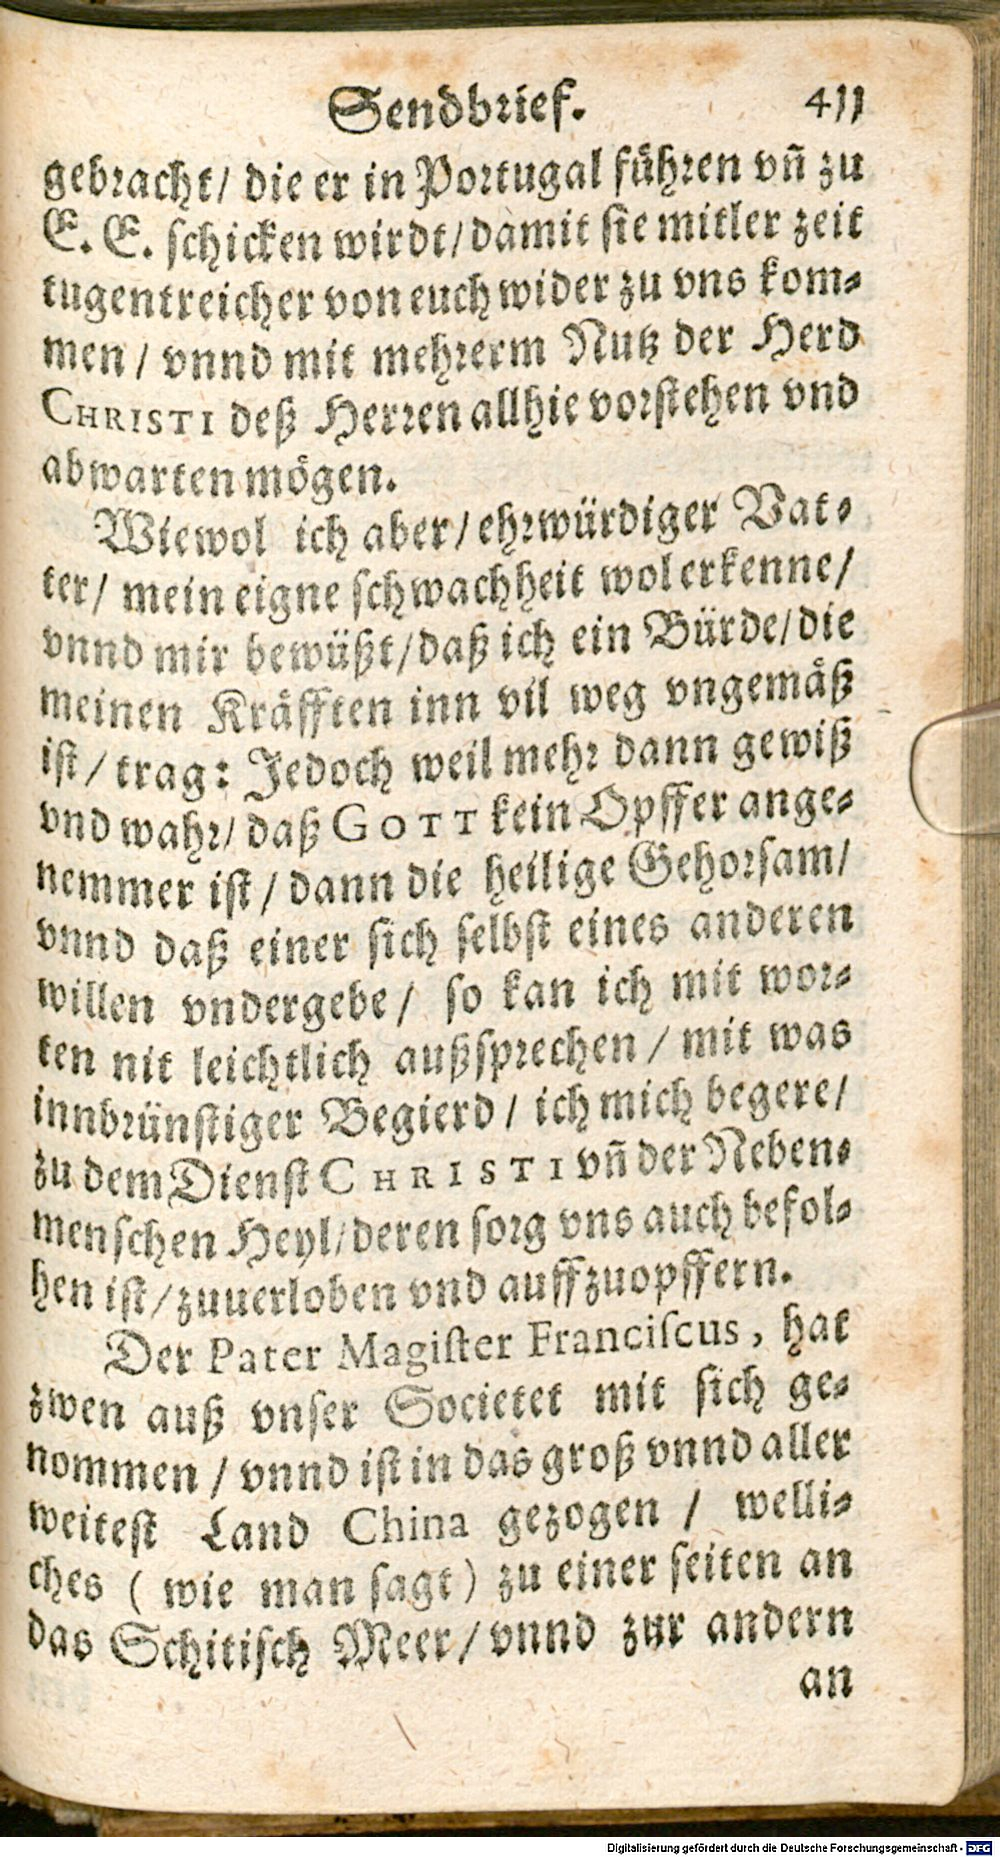 Sendbrief. 411
gebracht/ die er in Portugal führen vñ zu
E. E. schicken wirdt/ damit sie mitler zeit
tugentreicher von euch wider zu vns kom⸗
men / vnnd mit mehrerm Nutz der Herd
CHRISTI deß Herren allhie vorstehen vnd
abwarten mögen.
Wiewol ich aber/ ehrwürdiger Vat⸗
ter/ mein eigne schwachheit wol erkenne/
vnnd mir bewüßt/ daß ich ein Bürde/ die
meinen Kräfften inn vil weg vngemäß
ist/ trag: Jedoch weil mehr dann gewiß
vnd wahr/ daß GOTT kein Opffer ange⸗
nemmer ist/ dann die heilige Gehorsam/
vnnd daß einer sich selbst eines anderen
willen vndergebe/ so kan ich mit wor⸗
ten nit leichtlich außsprechen / mit was
innbrünstiger Begierd / ich mich begere/
zu dem Dienst CHRISTI vñ der Neben⸗
menschen Heyl/ deren sorg vns auch befol⸗
hen ist/ zuuerloben vnd auffzuopffern.
Der Pater Magister Franciscus, hat
zwen auß vnser Societet mit sich ge⸗
nommen / vnnd ist in das groß vnnd aller
weitest Land China gezogen / welli⸗
ches ( wie man sagt) zu einer seiten an
das Schitisch Meer/ vnnd zur andern
an
Digitalisierung gefördert durch die Deutsche Forschungsgemeinschaft - DFG